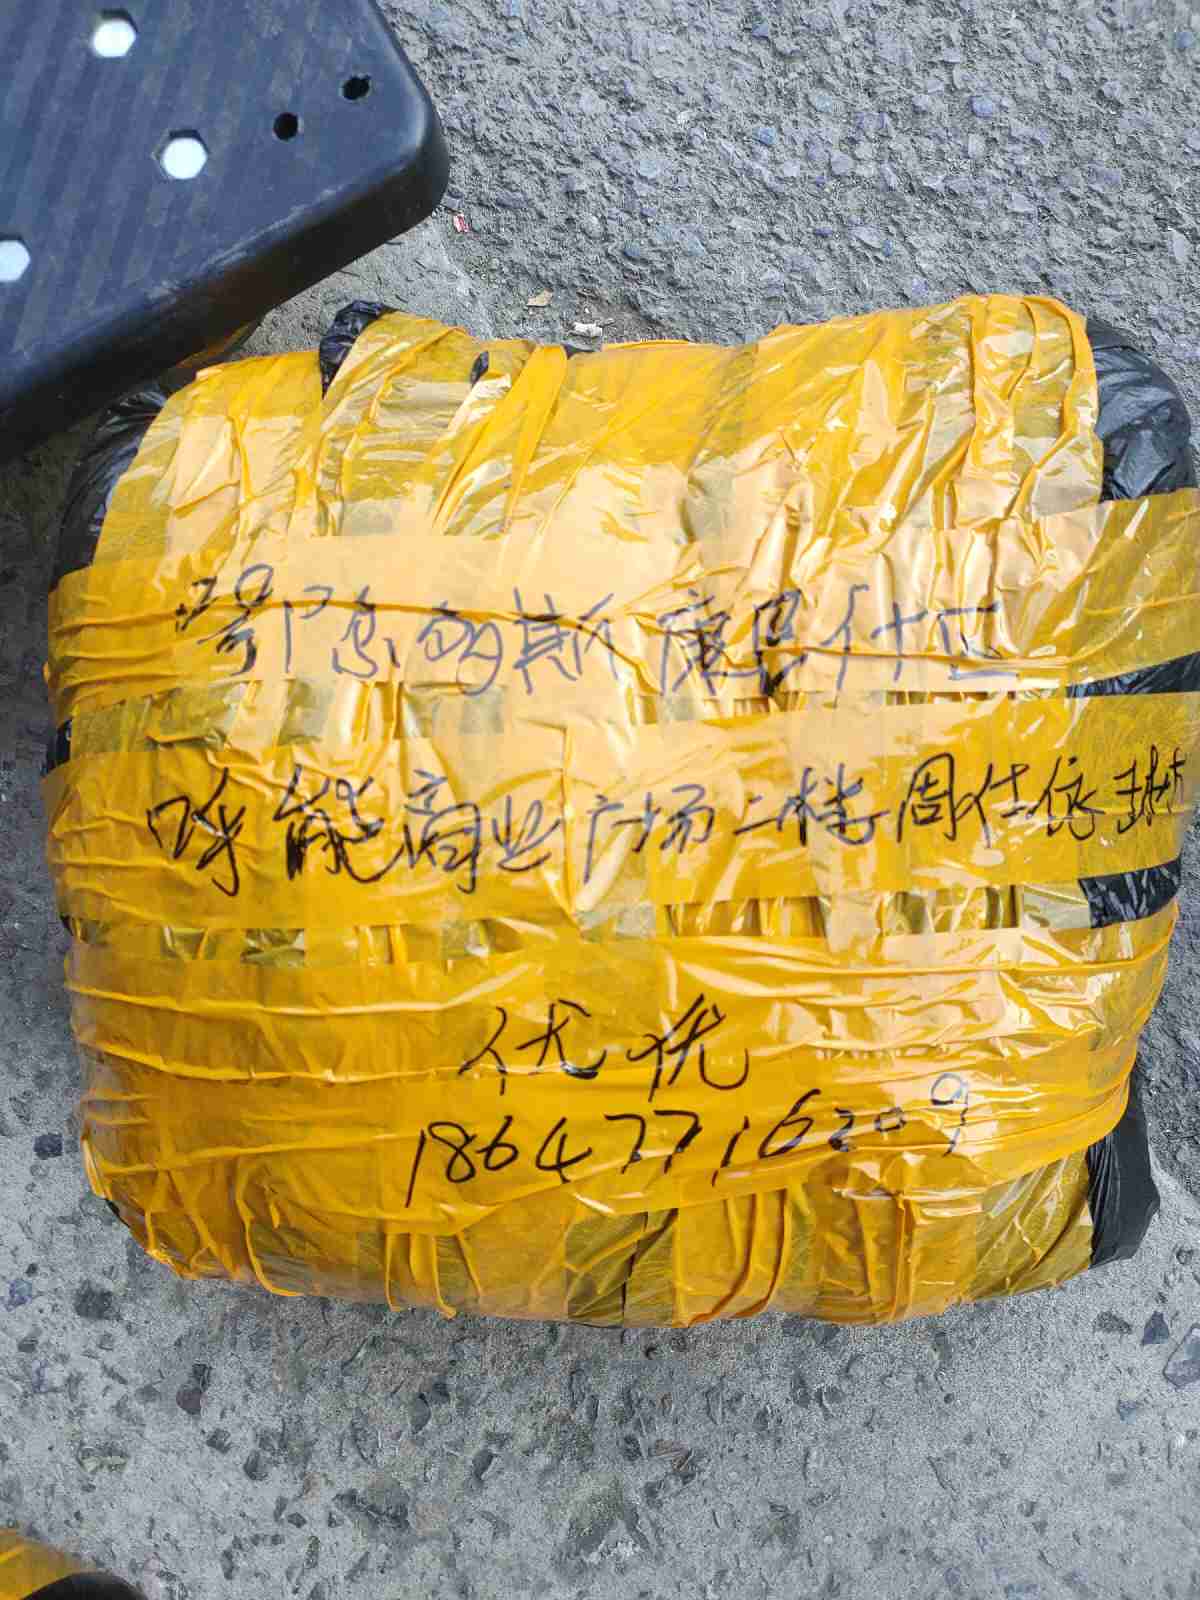 鄂尔多斯康巴什区
呼能商业广场二楼周仕依琳
优优
18647716209